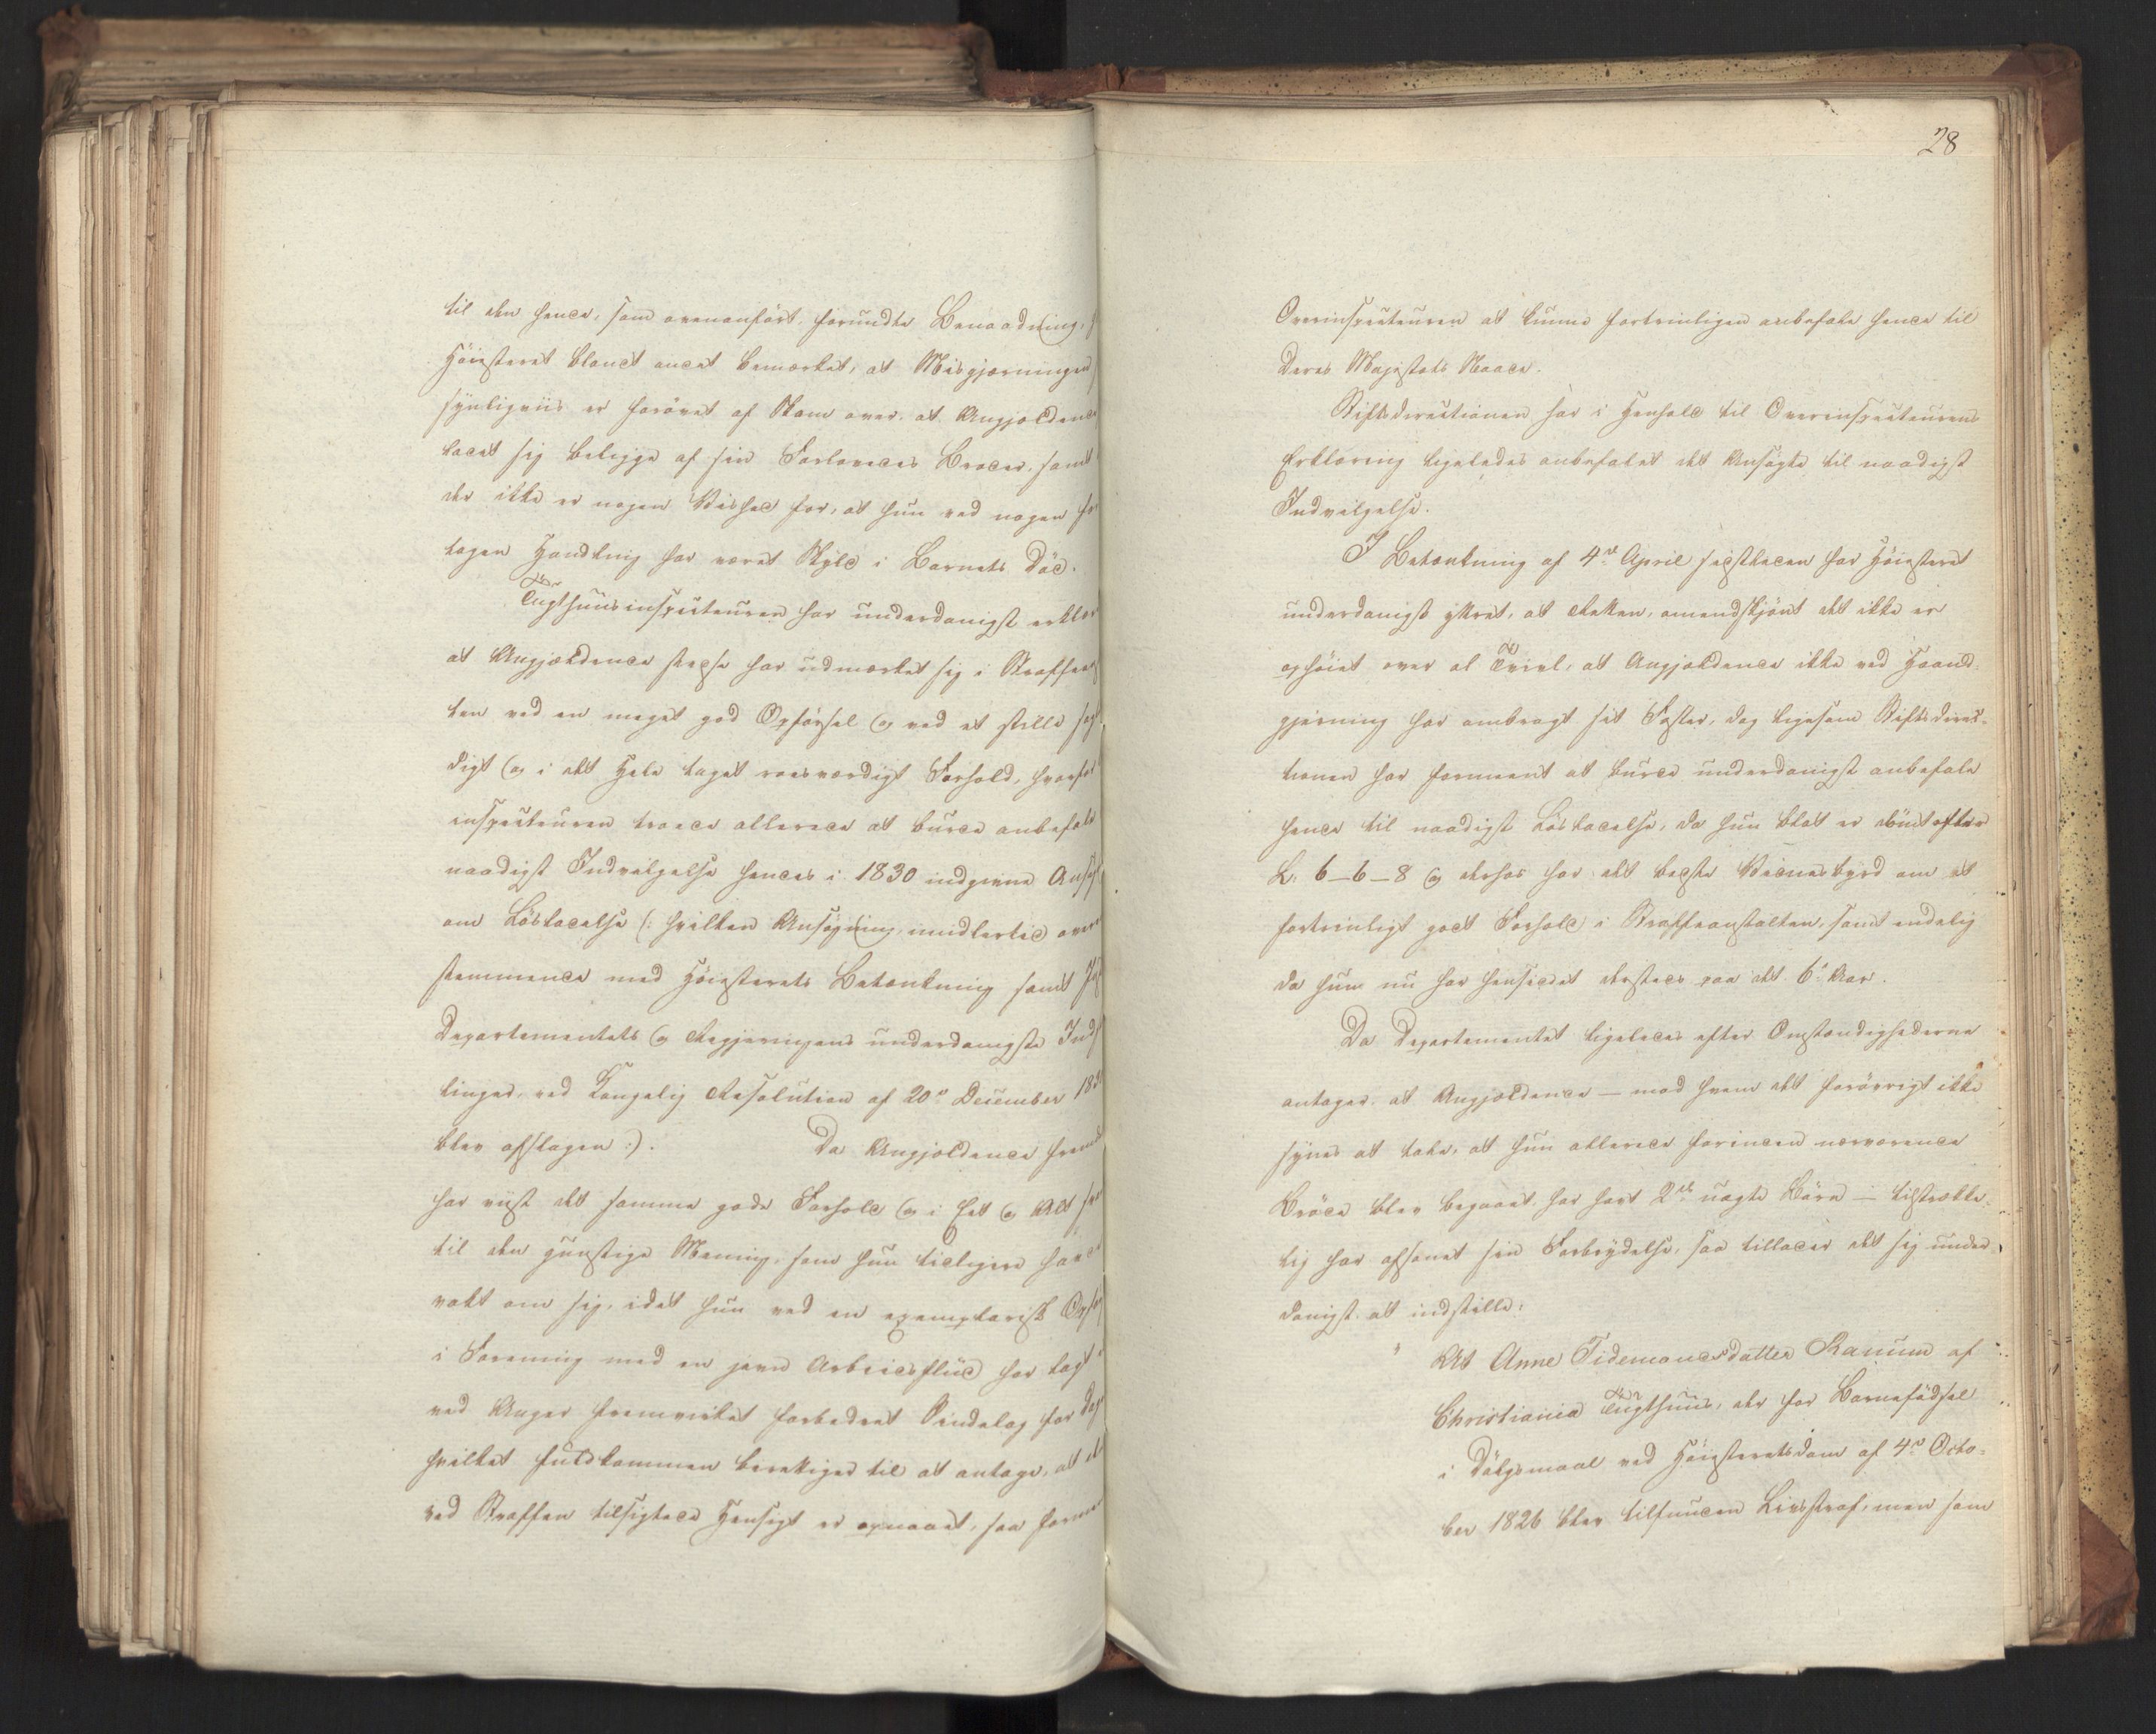 til den hende, som ovenanført, forundte Benaadning,
Høiesteret blandt andet bemærket, at Misgjærningen
synligviis er forøvet af Skam over, at Angjældende
ladet sig beligge af sin Forlovedes Broder, samt
der ikke er nogen Vished for, at hun ved nogen
tagen Handling har været Skyld i Barnets Død.
Tugthuusinspecteuren har underdanigst erklær
at Angjældende stedse har udmærket sig i Straffean
ten ved en meget god Opførsel og ved et stille
digt og i det Hele taget roesværdigt Forhold, hvorfor
inspecteuren troede allerede at burde anbefale
naadigst Indvilgelse hendes i 1830 indgivne Ansøg
om Løsladelse (: hvilken Ansøgning, imidlertid overe
stemmende med Høiesterets Betænkning samt
Departementets og Regjeringens underdanigste Ind
linger, ved Kongelig Resolution af 20de December 183
blev afslagen :). Da Angjældende frem
har viist det samme gode Forhold og i Eet og Alt
til den gunstige Mening, som hun tidligere havde
vakt om sig, idet hun ved en exemplarisk Opfør
i Forening med en jevn Arbeidsfliid har lagt
ved Anger fremvirket forbedret Sindelag for Dag
hvilket fuldkommen berettiger til at antage, at
ved Straffen tilsigtede Hensigt er opnaaet, saa formee
28
Overinspecteuren at kunne fortrinligen anbefale hende til
Deres Majestæts Naade.
Stiftsdirectionen har i Henhold til Overinspecteurens
Erklæring ligeledes anbefalet det Ansøgte til naadigst
Indvilgelse.
I Betænkning af 4de April sidstleden har Høiesteret
underdanigst yttret, at Retten, omendskjønt det ikke er
ophøiet over al Tvivl, at Angjældende ikke ved Haand-
gjerning har ombragt sit Foster, dog ligesom Stiftsdirec-
tionen har formeent at burde underdanigst anbefale
hende til naadigst Løsladelse, da hun blot er dømt efter
L. 6-6-8 og derhos har det bedste Vidnesbyrd om et
fortrinligt godt Forhold i Straffeanstalten, samt endelig
da hun nu har hensiddet dersteds paa det 6te Aar.
Da Departementet ligeledes efter Omstændighederne
antager, at Angjældende - mod hvem det forøvrigt ikke
synes at tale, at hun allerede forinden nærværende
Brøde blev begaaet, har havt 2de uægte Børn - tilstrække-
lig har afsonet sin Forbrydelse, saa tillader det sig under-
danigst at indstille:
" At Anne Tidemandsdatter Ranum af
Christiania Tugthuus, der for Barnefødsel
i Dølgsmaal ved Høiesteretsdom af 4de Octo-
ber 1826 blev tilfunden Livsstraf, men som